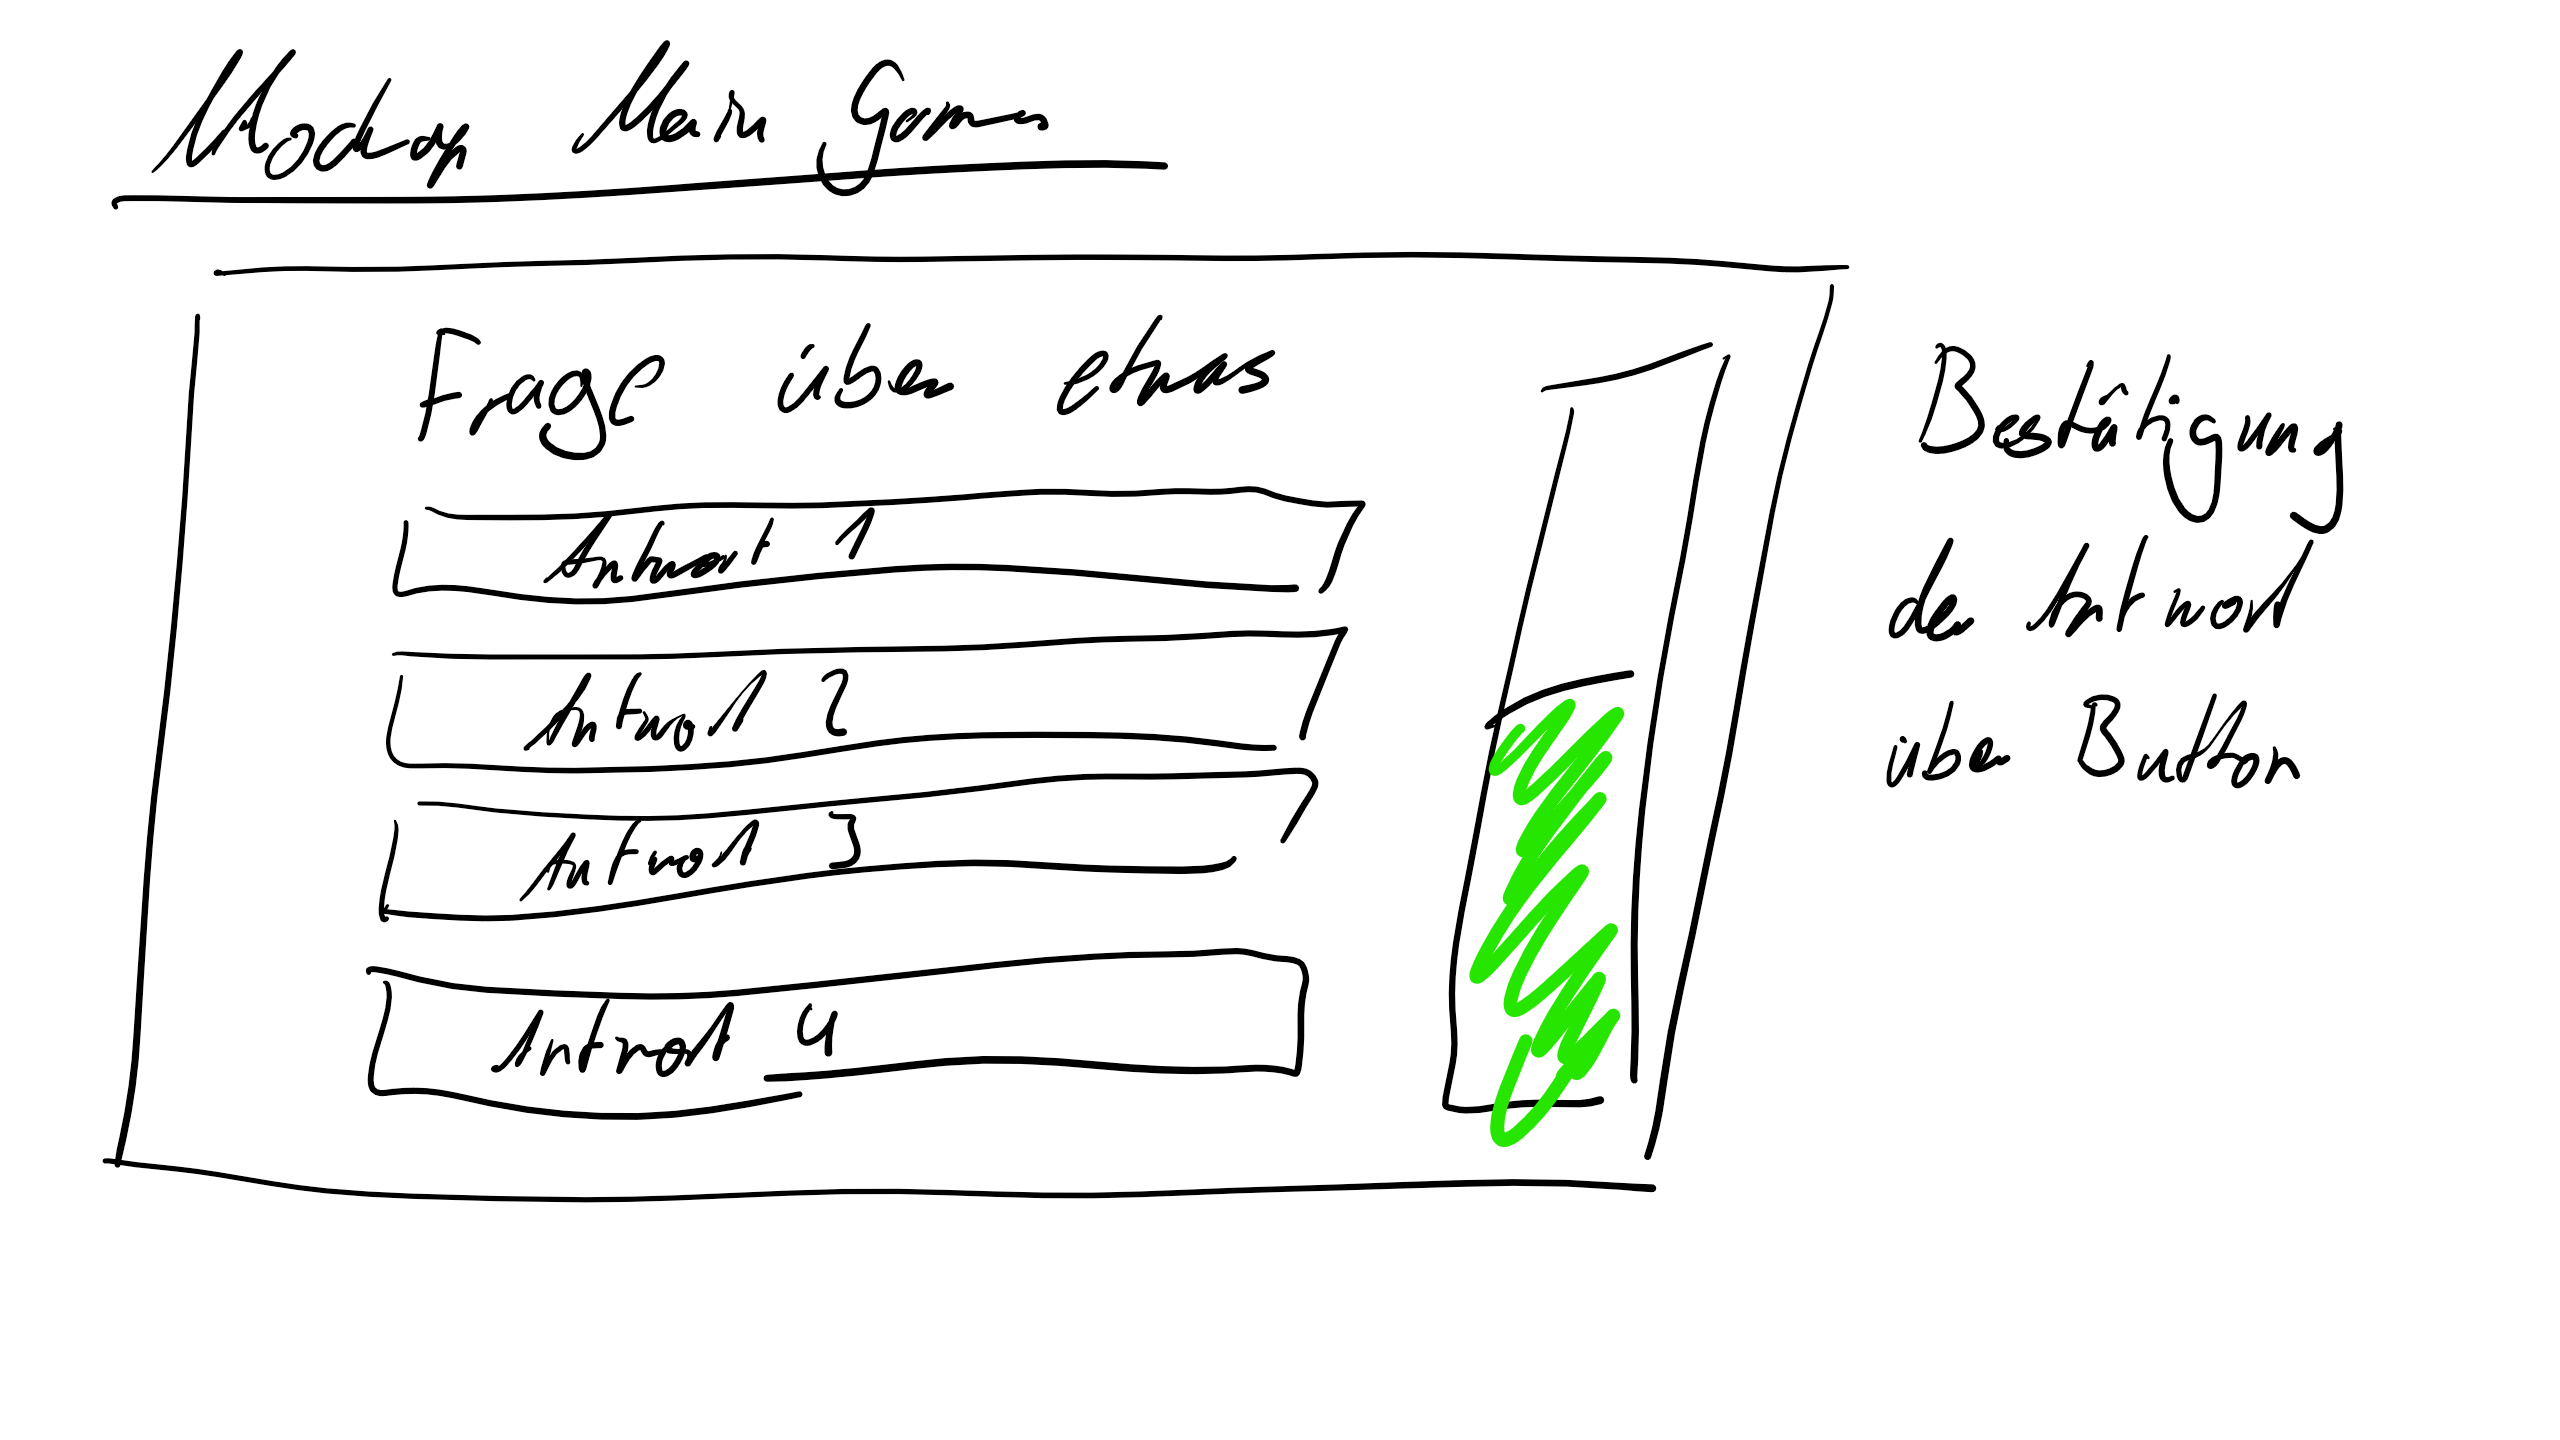 Mockup Main Game
Frage über etwas
Antwort 1
Antwort 2
Antwort 3
Antwort 4
Bestätigung
der Antwort
über Button